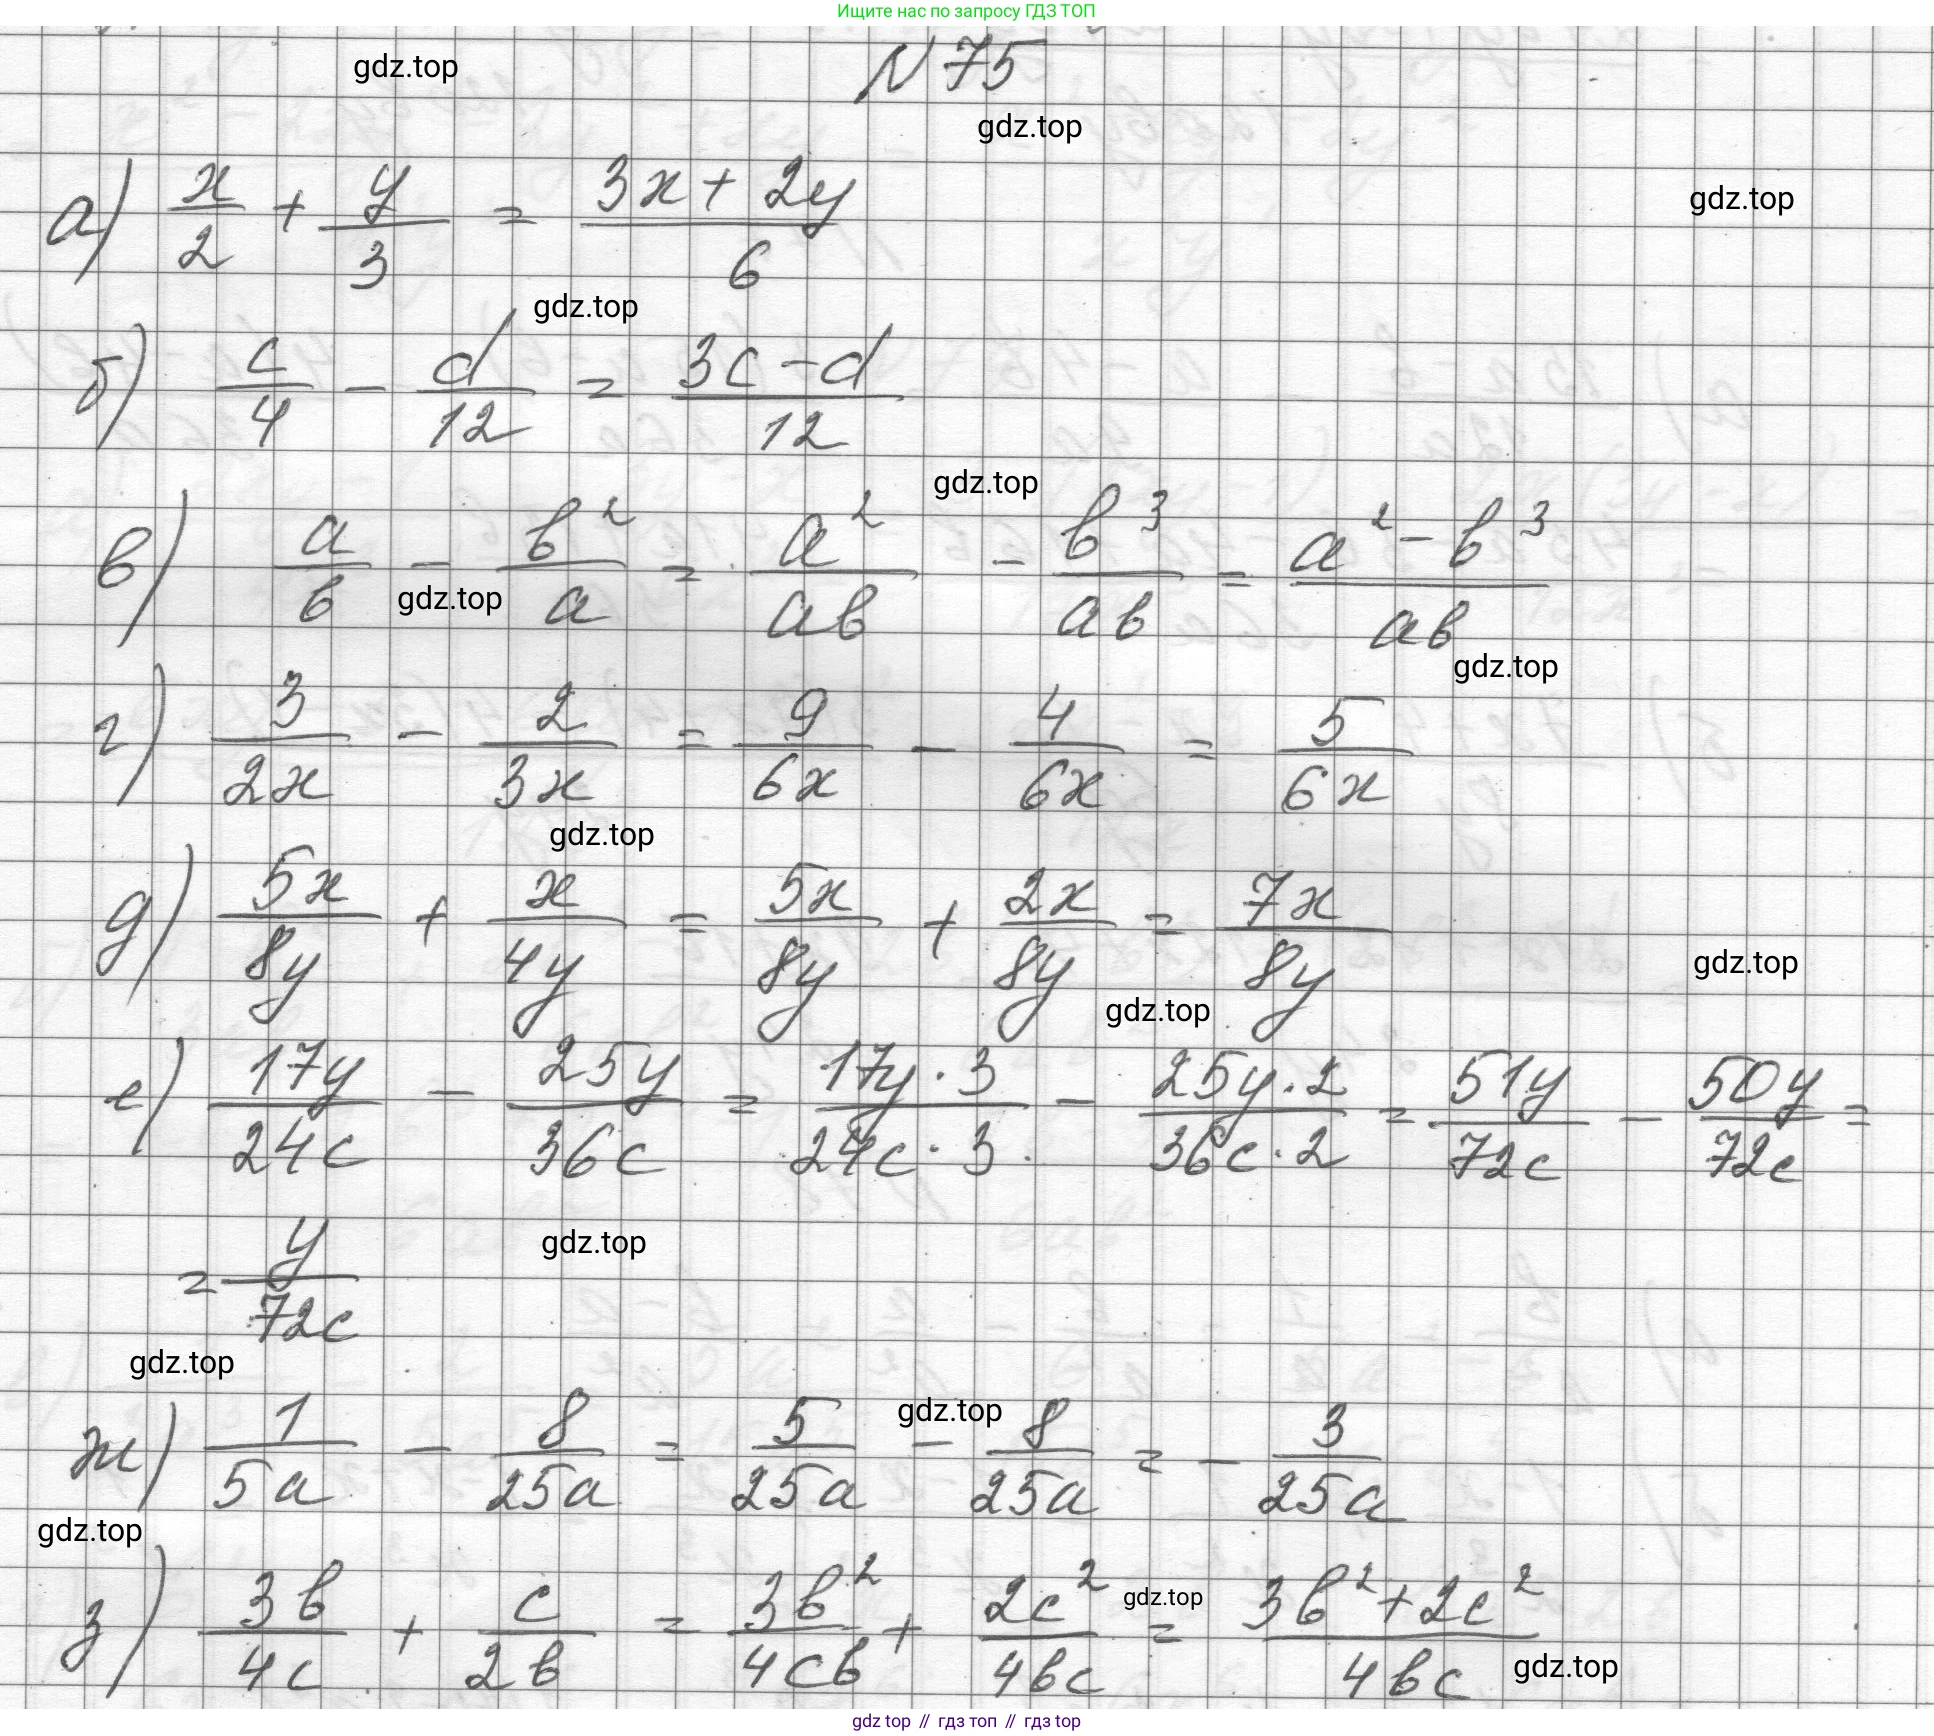 Ищите нас по запросу ГДЗ ТОП
N 75
gdz.top
gdz.top
gdz.top
а) x/2 + y/3 = (3x + 2y)/6
gdz.top
б) c/4 - d/12 = (3c - d)/12
gdz.top
в) a/b - b²/a = a²/ab - b³/ab = (a² - b³)/ab
gdz.top
gdz.top
г) 3/2x - 2/3x = 9/6x - 4/6x = 5/6x
gdz.top
д) 5x/8y + x/4y = 5x/8y + 2x/8y = 7x/8y
gdz.top
gdz.top
е) 17y/24c - 25y/36c = (17y · 3)/(24c · 3) - (25y · 2)/(36c · 2) = 51y/72c - 50y/72c =
= y/72c
gdz.top
gdz.top
gdz.top
ж) 1/5a - 8/25a = 5/25a - 8/25a = - 3/25a
gdz.top
з) 3b/4c + c/2b = 3b²/4cb + 2c²/4bc = (3b² + 2c²)/4bc
gdz.top
gdz.top
gdz top // гдз топ // гдз.top